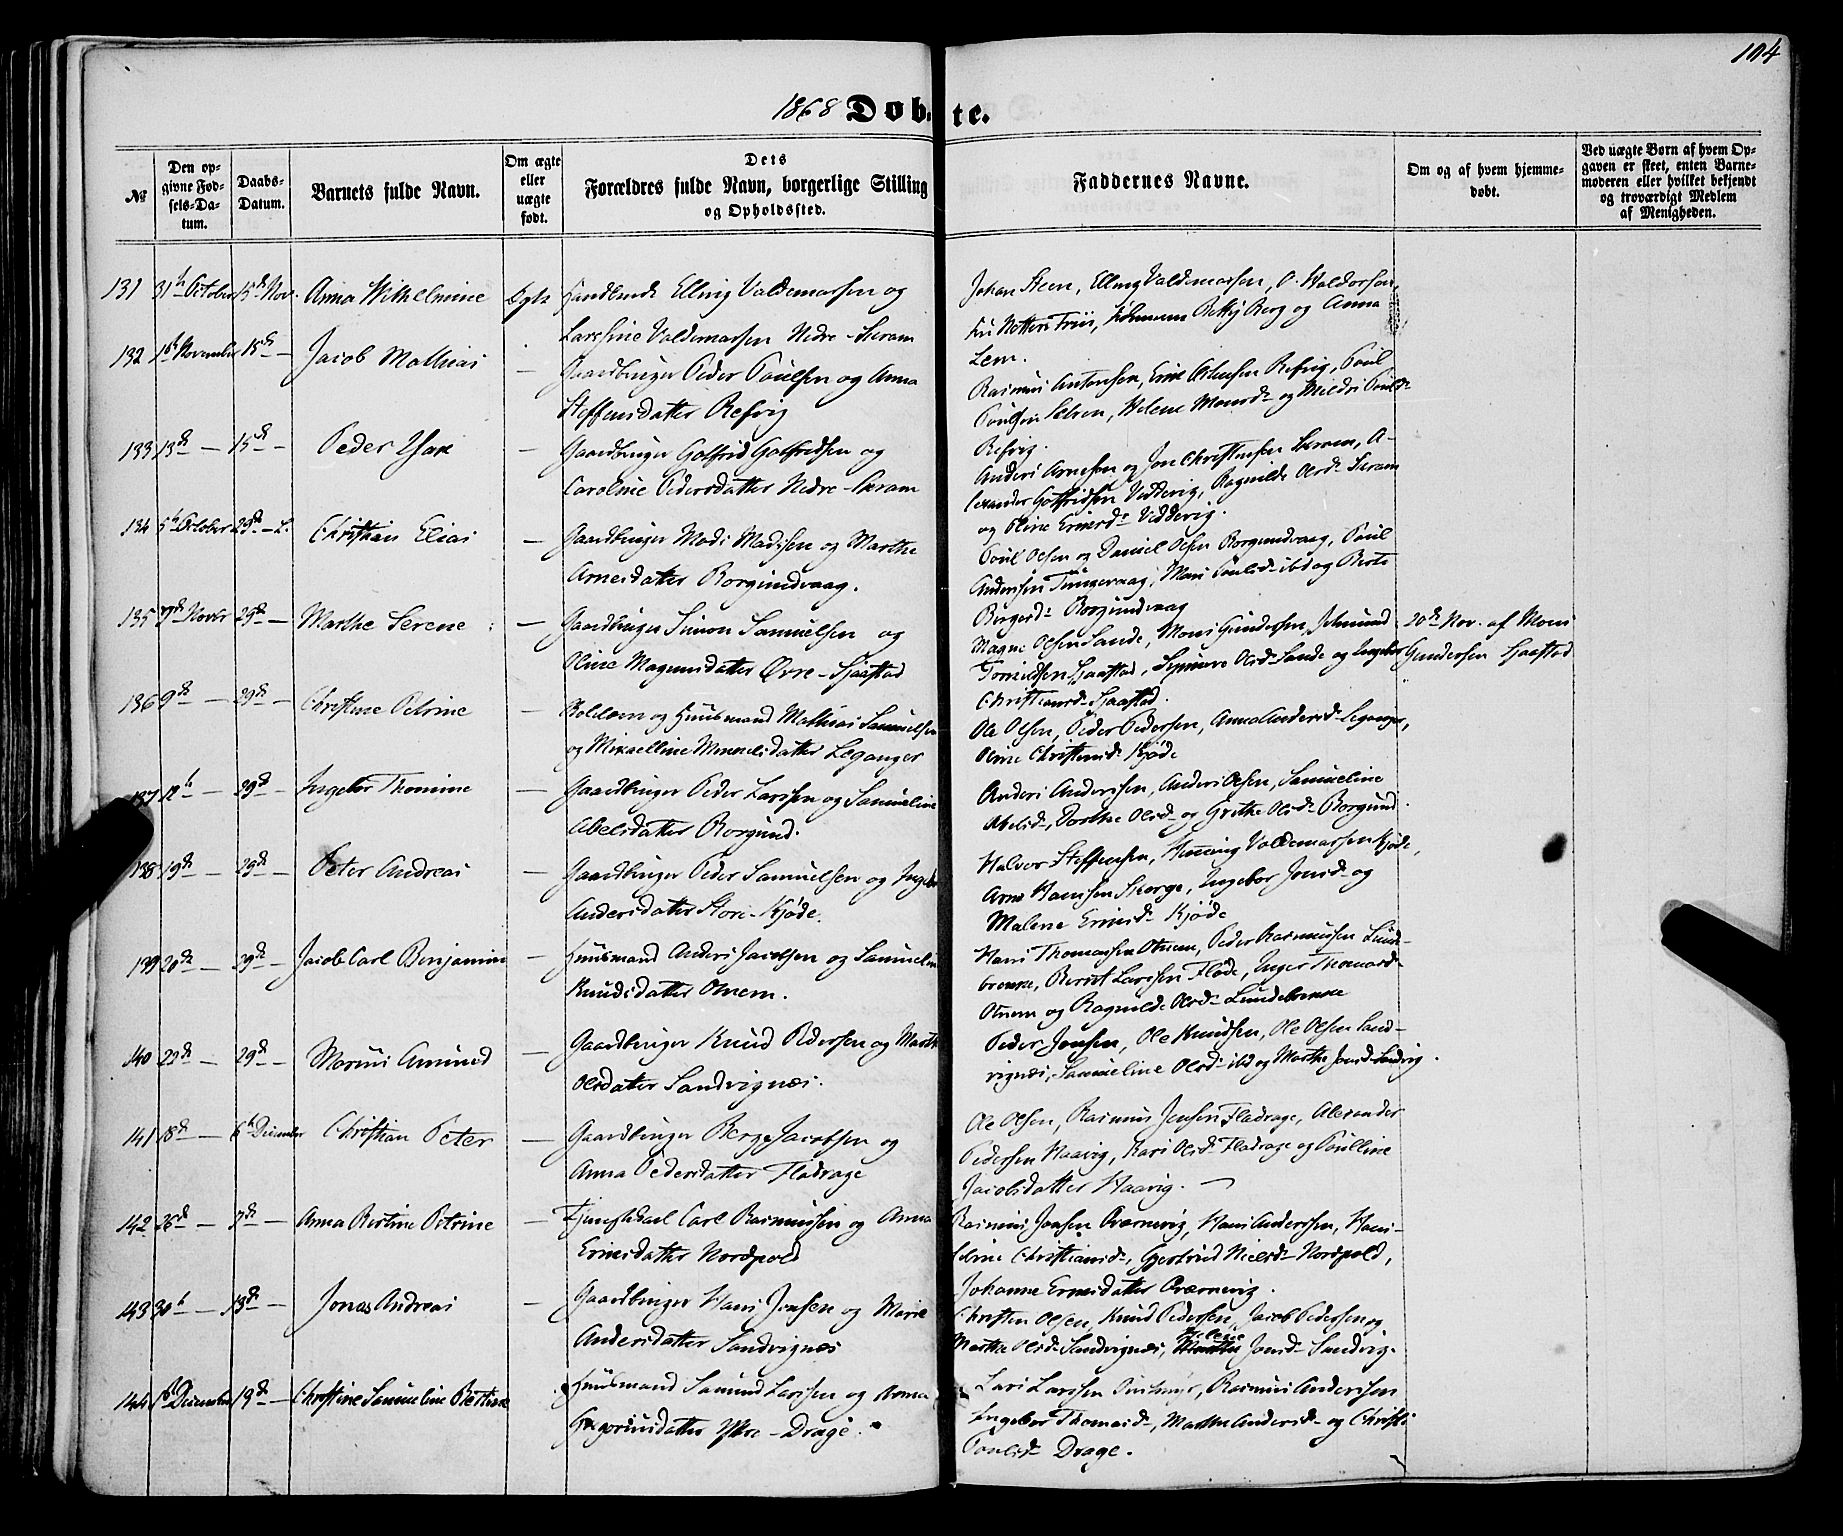 104
1868 Døbte.
№
Den opgivne Fødsels-Datum.
Daabs-Datum.
Barnets fulde Navn.
Om ægte eller uægte født.
Dets Forældres fulde Navn, borgerlige Stilling og Opholdssted.
Faddernes Navne.
Om og af hvem hjemmedøbt.
Ved uægte Børn af hvem Opgaven er skeet, enten Barnemoderen eller hvilket bekjendt og troværdigt Medlem af Menigheden.
131 31te October 15de Nov. Anna Wilhelmine Ægte Handlende Elling Valdemarsen og
Larssine Valdemarsen Nedre-Skram
Johan Steen, Elling Valdemarsen, O. Haldorsen,
Friis, Betty Berg og Anna
Lem.
132 1ste November 15de — Jacob Mathias — Gaardbruger Peder Poulsen og Anna
Steffensdatter Refvig
Rasmus Antonsen, Refvig, Poul
Poulsen Selven, Helene Monsd: og Mildri Poulsd:
Refvig.
133 13de — 15de — Peder Isak — Gaardbruger Golfrid Golfridsen og
Caroline Pedersdatter Nedre-Skram
Anders Arnesen og Jon Christensen Skram, A-
lexander Golfridsen Vedderig, Ragnilde Olsd: Skram
og Oline Ernsd: Vedderig.
134 5te October 29de — Christian Elias — Gaardbruger Mads Madsen og Marthe
Arnesdatter Borgundvaag.
Poul Olsen og Daniel Olsen Borgundvaag, Poul
Andersen Tungevaag, Mari Poulsd: ibd og Berte
Birgersd: Borgundvaag
135 7de Novbr 29de — Marthe Serene — Gaardbruger Simon Samuelsen og
Oline Magnusdatter Øvre-Sjaastad
Magne Olsen Sande, Mons Gundersen,
Sjaastad, Olsd: Sande og Ingebor
Christiansd: Sjaastad.
20de Nov. af Mons
Gundersen Sjaastad
136 9de — 29de — Christine Petrine — og Huusmand Mathias Samuelsen
og Mikaelline Monnesdatter Leganger
Ole Olsen, Peder Pedersen, Anna Andersd: Leganger,
Oline Christensd: Kjøde
137 12te — 29de — Ingebor Thomine — Gaardbruger Peder Larssen og Samueline
Abelsdatter Borgund.
Anders Anderssen, Anders Olsen, Samueline
Abelsd:, Dorthe Olsd: og Grethe Olsd: Borgund.
138 19de — 29de — Peter Andreas — Gaardbruger Peder Samuelsen og Ingebor
Andersdatter Store-Kjøde.
Halvor Steffensen, Henning Valdemarssen Kjøde,
Arne Hanssen Skorge, Ingebor Jonsd: og
Malene Ernsd: Kjøde
139 20de — 29de — Jacob Carl Benjamin — Huusmand Anders Jacobsen og Samueline
Knudsdatter Otnem.
Hans Thomassen Otnem, Peder Rasmussen Lunde-
brekke, Bernt Larssen Fløde, Inger Thomasd:
Otnem og Ragnilde Olsd: Lundebrekke
140 23de — 29de — Marius Amund — Gaardbruger Knud Pedersen og Marthe
Olsdatter Sandvignæs.
Peder Jonsen, Ole Knudsen, Ole Olsen Sand-
vignæs, Samueline Olsd: ibd og Marthe Jonsd: Sandvig.
141 18de — 6te December Christian Peter — Gaardbruger Berge Jacobsen og
Anna Pedersdatter Fladrage
Ole Olsen, Rasmus Jensen Fladrage, Alexander
Pedersen Haavig, Kari Olsd: Fladrage og Poulline
Jacobsdatter Haavig. —
142 26de — 7de — Anna Bertine Petrine — Tjenestekarl Carl Rasmussen og Anna
Ernsdatter Nordpold
Rasmus Jonsen Qværnevig, Hans Anderssen, Hans-
Christiansd:, Gjertrud Nielsd: Nordpold,
Johanne Ernsdatter Qværnevig.
143 30te — 13de — Jonas Andreas — Gaardbruger Hans Jonsen og Marie
Andersdatter Sandvignæs
Christen Olsen, Knud Pedersen, Jacob Pedersen og
Marthe Olsd: Sandvignæs, Helene Jonsd: Sandvig.
144 1ste December 19de — Christine Samueline Bertine Huusmand Samund Larssen og Anna
Gregoriusdatter Ytre-Drage.
Lars Larssen, Rasmus Anderssen
Ingebor Thomasd:, Marthe Andersd: og Christi
Poulsd: Drage.